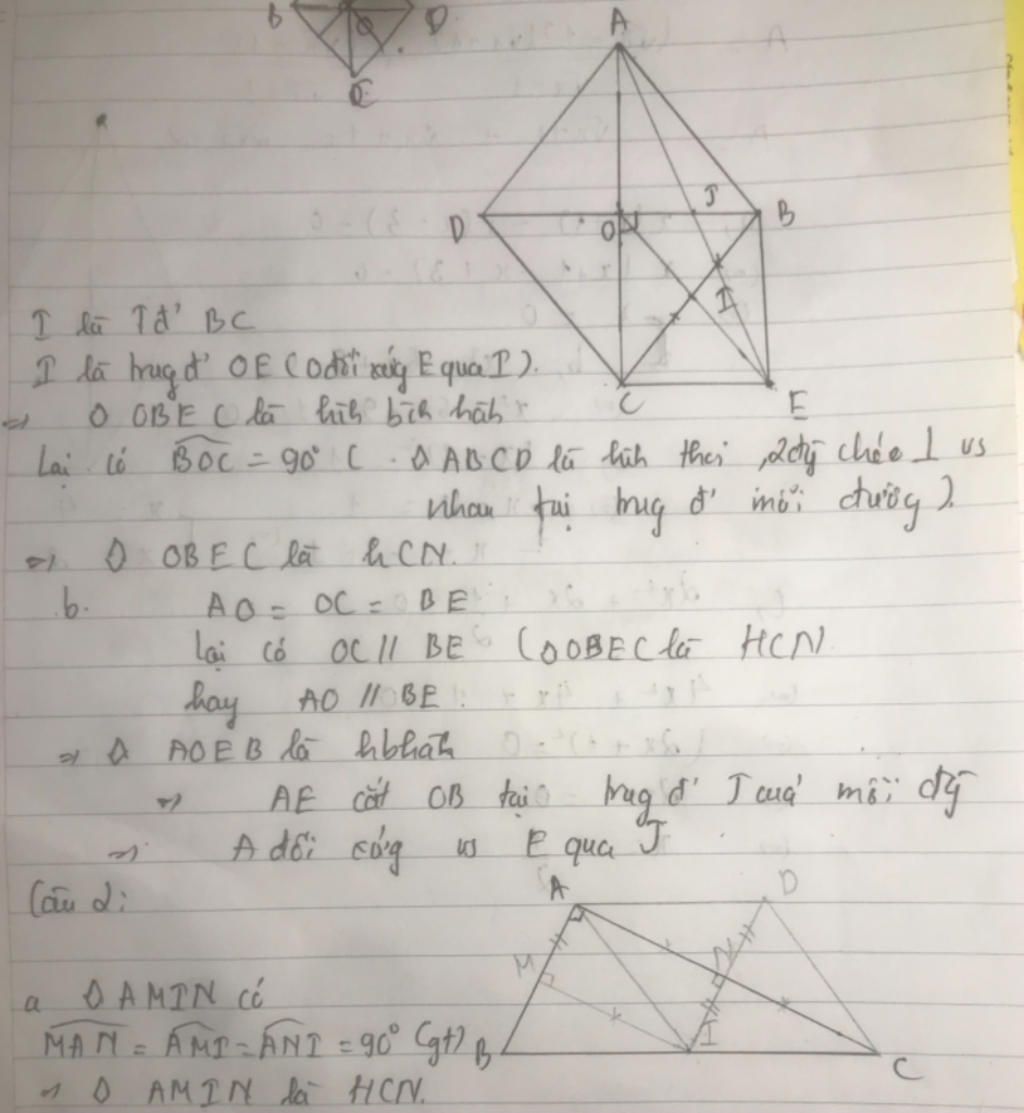 B O D
C
A
D O J B
I
C E
I là Tđ' BC
I là trug đ' OE (O đối xứg E qua I).
=> ◊ OBEC là hìh bìh hàh
Lại có BOC = 90° ( ◊ ABCD là hìh thoi, 2 đg̃ chéo ⊥ vs
nhau tại trug đ' mỗi đường).
=> ◊ OBEC là hCN.
b. AO = OC = BE
Lại có OC // BE (◊ OBEC là HCN
hay AO // BE.
=> ◊ AOEB là hbhàh
=> AE cắt OB tại trug đ' J cuả mỗi đg̃
=> A đối xứg vs E qua J
Câu 2:
A D
M N
B I C
a ◊ AMIN có
MAN = AMI = ANI = 90° (gt)
=> ◊ AMIN là HCN.